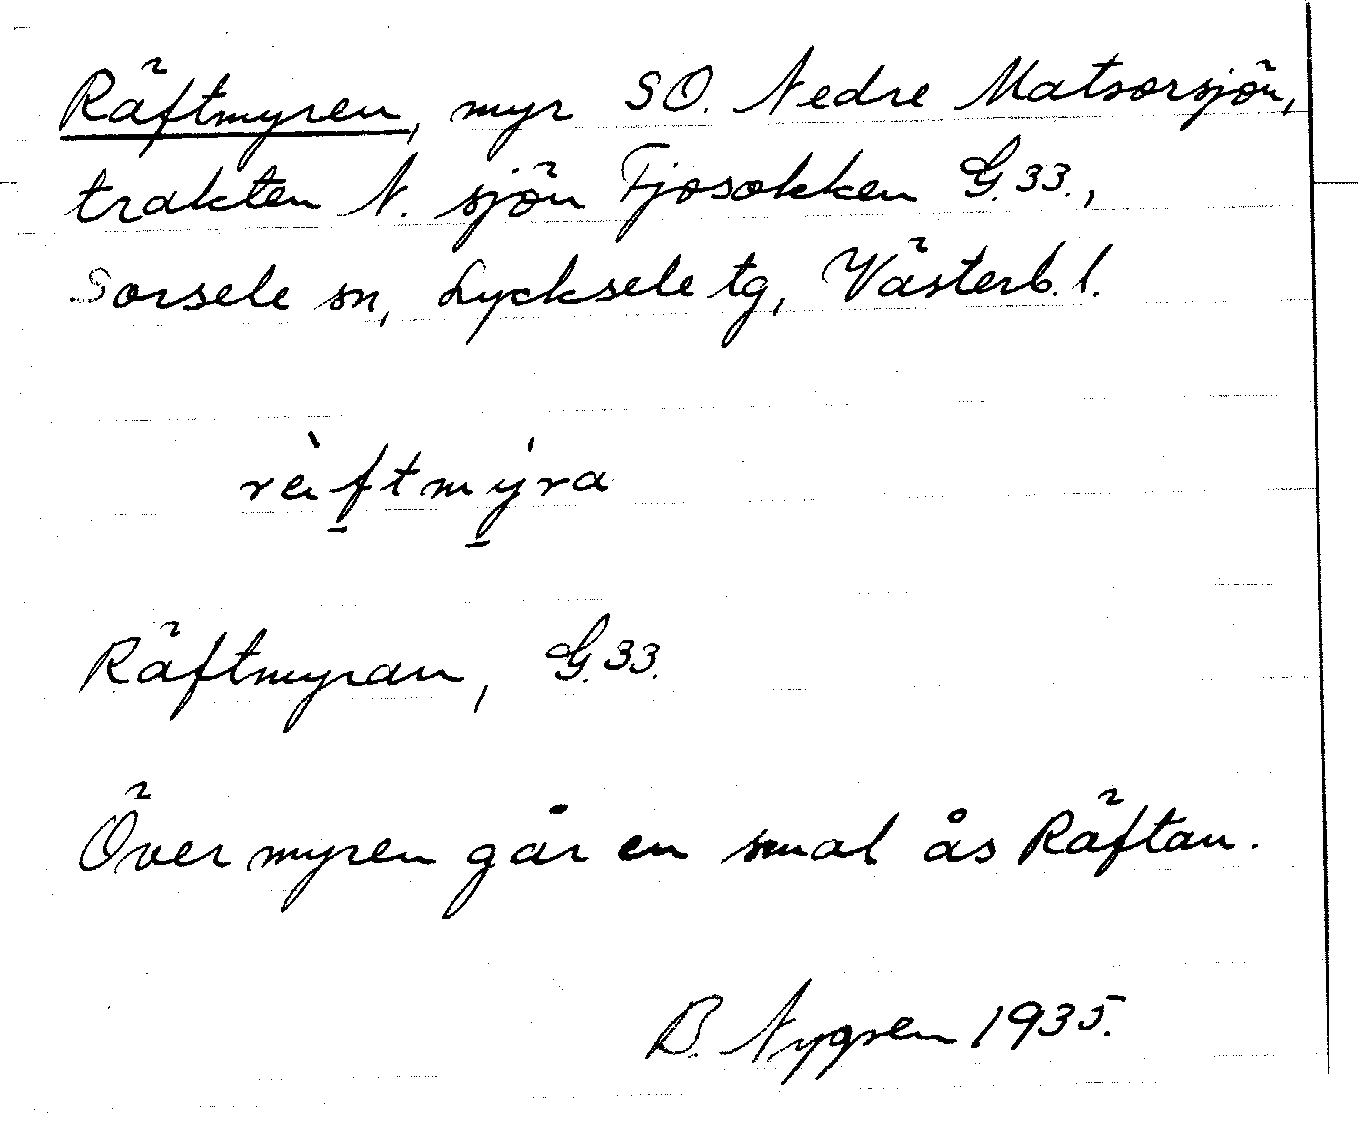 Räftmyren, myr SO. Nedre Matsorsjön,
trakten N. sjön Fjosokken G.33.,
Sorsele sn, Lycksele tg, Västerb. l.
rèftmýra
Räftmyran, G.33.
Över myren går en smal ås Räftan.
B. Nygren 1935.